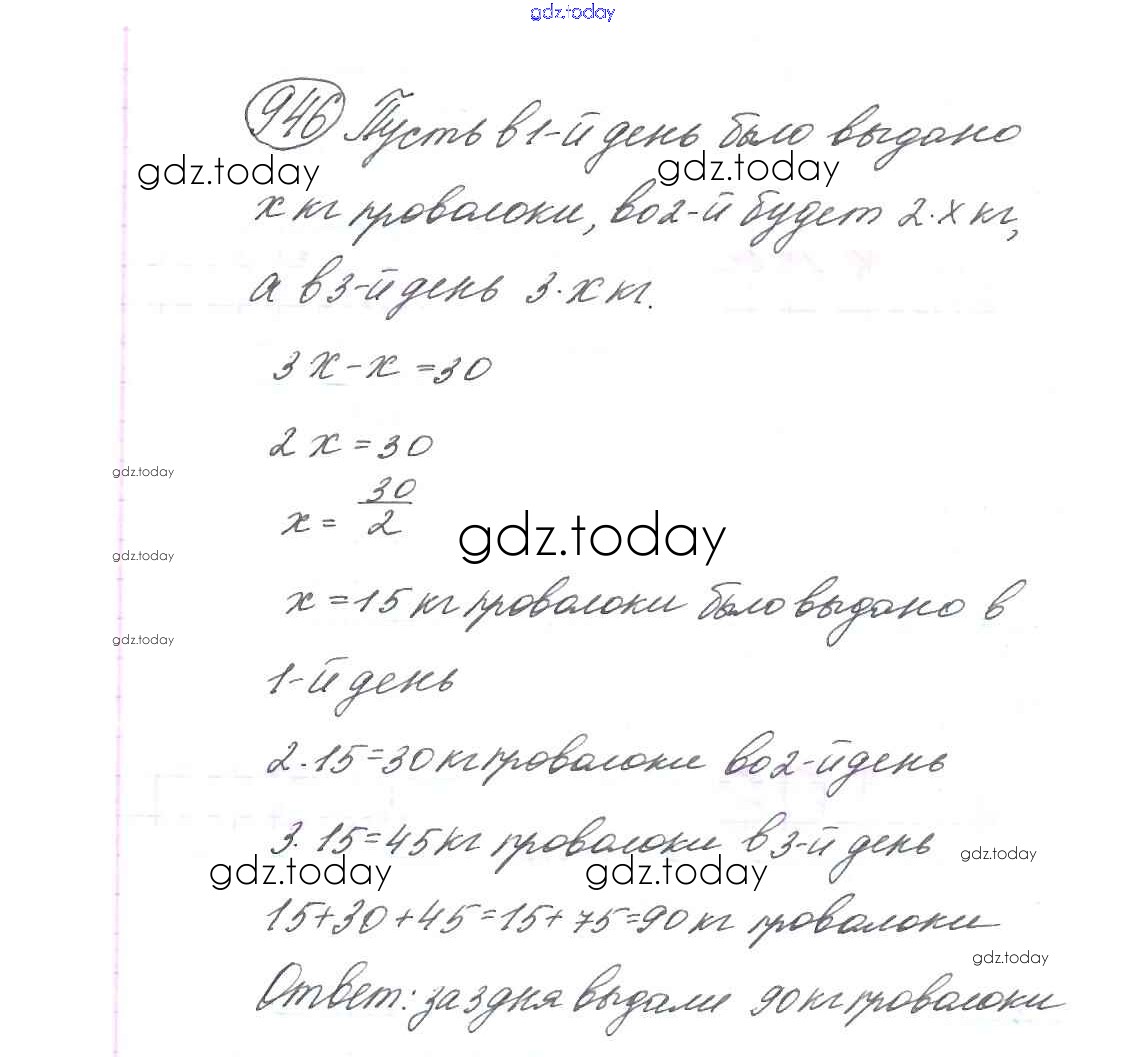 gdz.today
946 Пусть в 1-й день было выдано
gdz.today gdz.today
х кг проволоки, во 2-й будет 2·х кг,
а в 3-й день 3·х кг.
3х-х=30
2х=30
gdz.today
х= 30/2
gdz.today
gdz.today
х=15 кг проволоки было выдано в
gdz.today
1-й день
2·15=30 кг проволоки во 2-й день
3·15=45 кг проволоки в 3-й день
gdz.today
gdz.today gdz.today
15+30+45=15+75=90 кг проволоки
gdz.today
Ответ: за 3 дня выдали 90 кг проволоки